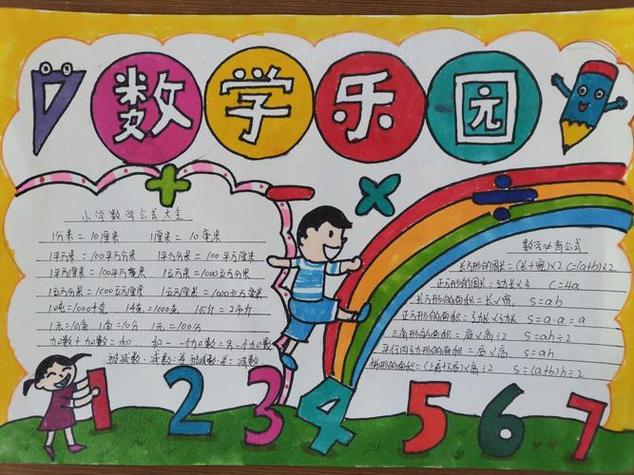 数学乐园
+ - × ÷
小学数学公式大全
1分米=10厘米 1厘米=10毫米
1平方米=100平方分米 1平方分米=100平方厘米
1平方厘米=100平方毫米 1立方米=1000立方分米
1立方分米=1000立方厘米 1立方厘米=1000立方毫米
1吨=1000千克 1千克=1000克
1元=10角 1角=10分 1元=100分
加数+加数=和 和-一个加数=另一个加数
被减数-减数=差 被减数-差=减数
数学必考公式
长方形的周长=(长+宽)×2 C=(a+b)×2
正方形的周长=边长×4 C=4a
长方形的面积=长×宽 S=ab
正方形的面积=边长×边长 S=a·a=a
三角形的面积=底×高÷2 S=ah÷2
平行四边形的面积=底×高 S=ah
梯形的面积=(上底+下底)×高÷2 S=(a+b)h÷2
1 2 3 4 5 6 7